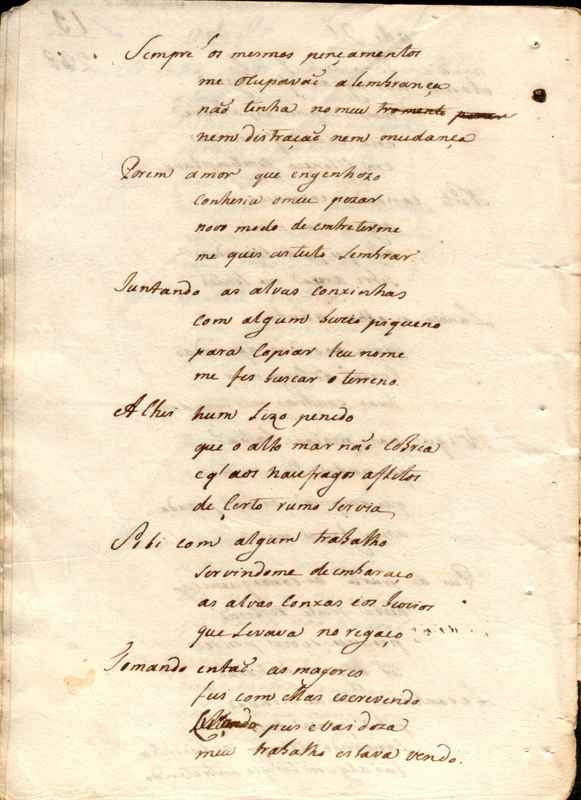 Sempre os mesmos pençamentos
me Ocupavaõ a lembrança
naõ tinha no meu tromento
nem distraçaõ nem mudança
Porem amor que engenhozo
Conhesia o meu pezar
novo modo de entreterme
me quis astuto Lembrar
Juntando as alvas conxinhas
com algum buzio piqueno
para Copiar teu nome
me fes buscar o terreno
Achei hum Lizo penedo
que o alto mar naõ Cobria
e q' aos naufragos aflitos
de Çerto rumo servia,
Sobi com algum trabalho
servindome de embaraço
as alvas Conxas e os buzios
que Levava no regaço
Tomando entaõ as mayores
fui com ellas escrevendo
pus e vaidoza
meu trabalho estava vendo.